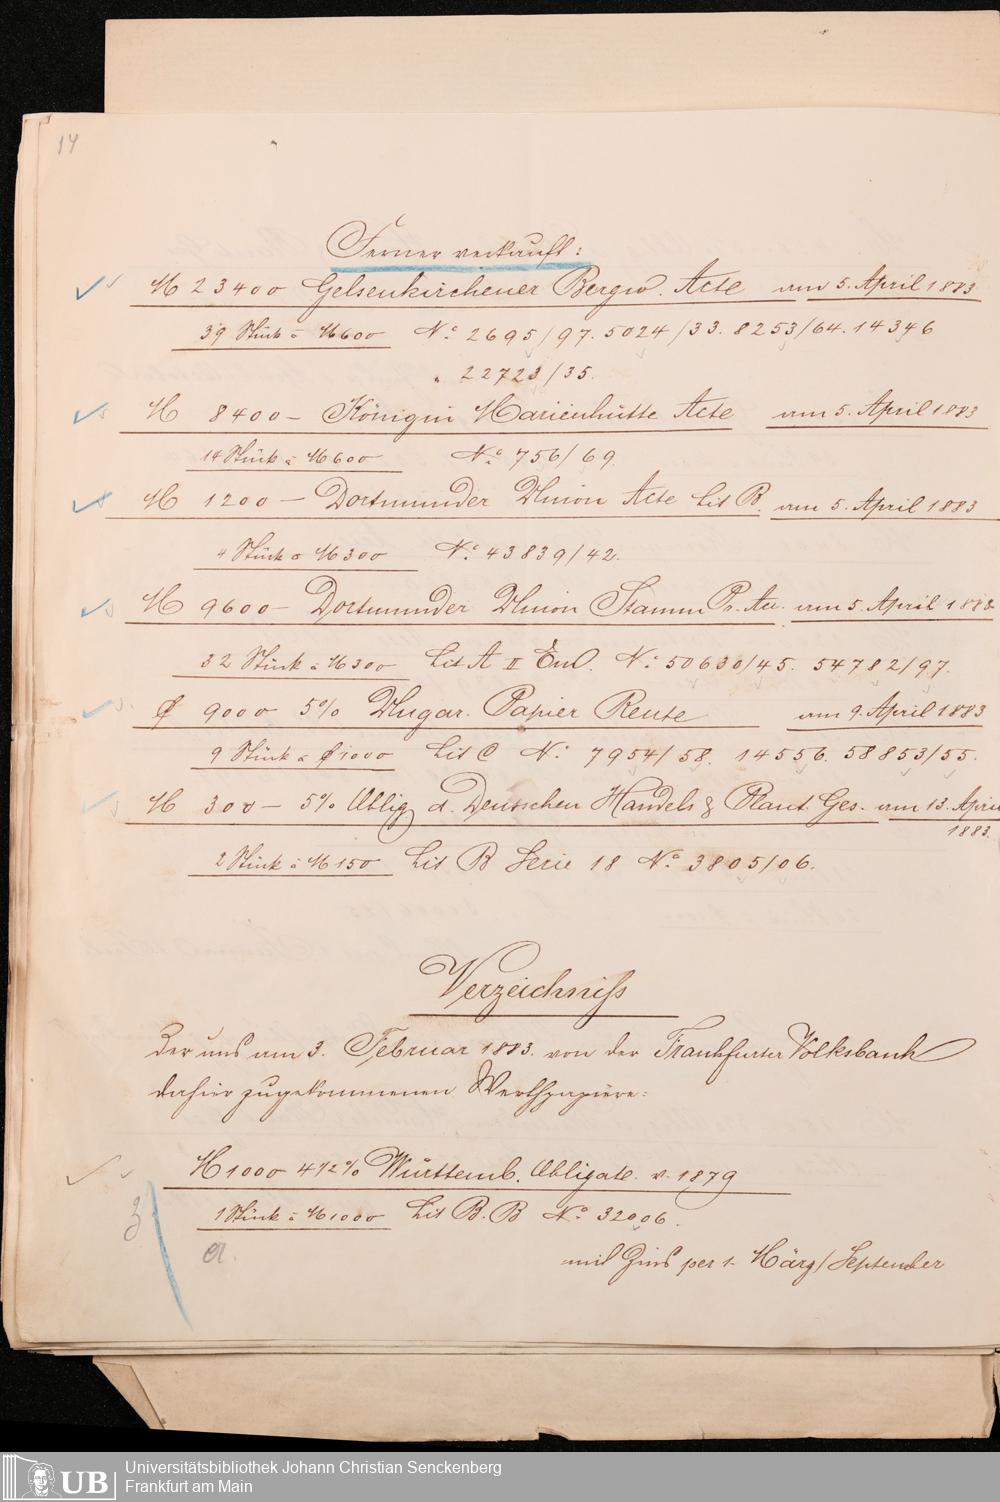 14
Ferner verkauft:
M 23400 Gelsenkirchener Bergw. Acte am 5. April 1883
39 Stück à M 600 No. 2695/97. 5024/33. 8253/64. 14346
" 22723/35.
M 8400 – Königin Marienhütte Acte am 5. April 1883
14 Stück à M 600 No. 756/69.
M 1200 – Dortmunder Union Acte Lit B. am 5. April 1883
4 Stück à M 300 No. 43839/42.
M 9600 – Dortmunder Union Stamm Pr. Act. am 5. April 1883
32 Stück à M 300 Lit A II Em. No. 50630/45. 54782/97.
f 9000 5% Ungar. Papier Rente am 9. April 1883
9 Stück à f 1000 Lit C No. 7954/58. 14556. 58853/55.
M 300 – 5% Oblig d. Deutschen Handels & Plant. Ges. am 13. April
1883.
2 Stück à M 150 Lit B Serie 18 No. 3805/06.
Verzeichniß
der uns am 3. Februar 1883. von der Frankfurter Volksbank
dahier zugekommenen Werthpapiere:
M 1000 4 1/2% Württemb. Obligat. v. 1879
1 Stück à M 1000 Lit B.B No. 32006.
mit Zins per 1. März/September
UB Universitätsbibliothek Johann Christian Senckenberg
Frankfurt am Main